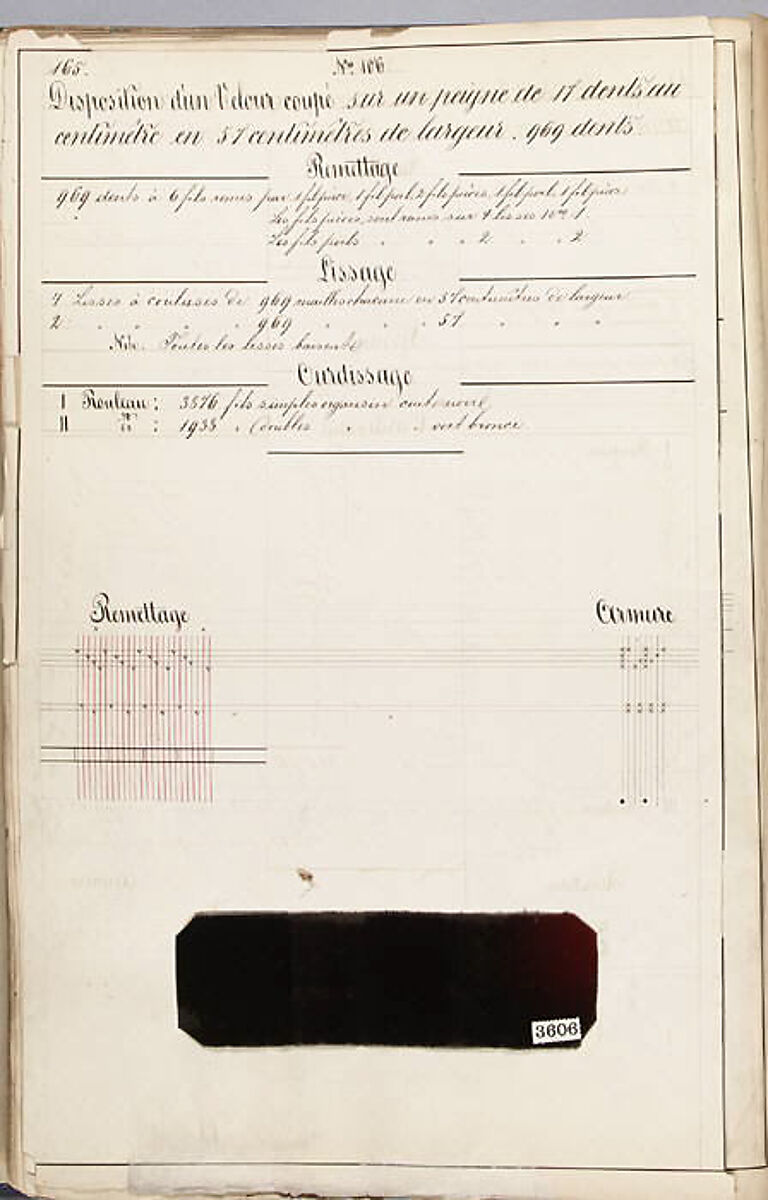 165.
N° 106
Disposition d'un Velour coupé sur un peigne de 17 dents au
centimètre en 57 centimètres de largeur. 969 dents
Remettage
969 dents à 6 fils remis par 1 fil pièce, 1 fil poil, 2 fils pièces, 1 fil poil, 1 fil pièce
Les fils pièces sont remis sur 4 lisses
Les fils poils " " " 2 " " 2
Lissage
4 Lisses à coulisses de 969 mailles chacune en 57 centimètres de largeur
2 " " " " 969 " " " 57 " " "
Nota. Toutes les lisses baissent
Ourdissage
I Rouleau : 3876 fils simples organsin cuit noir
II " : 1938 " doubles " " vert bronce
Remettage
Armure
3606